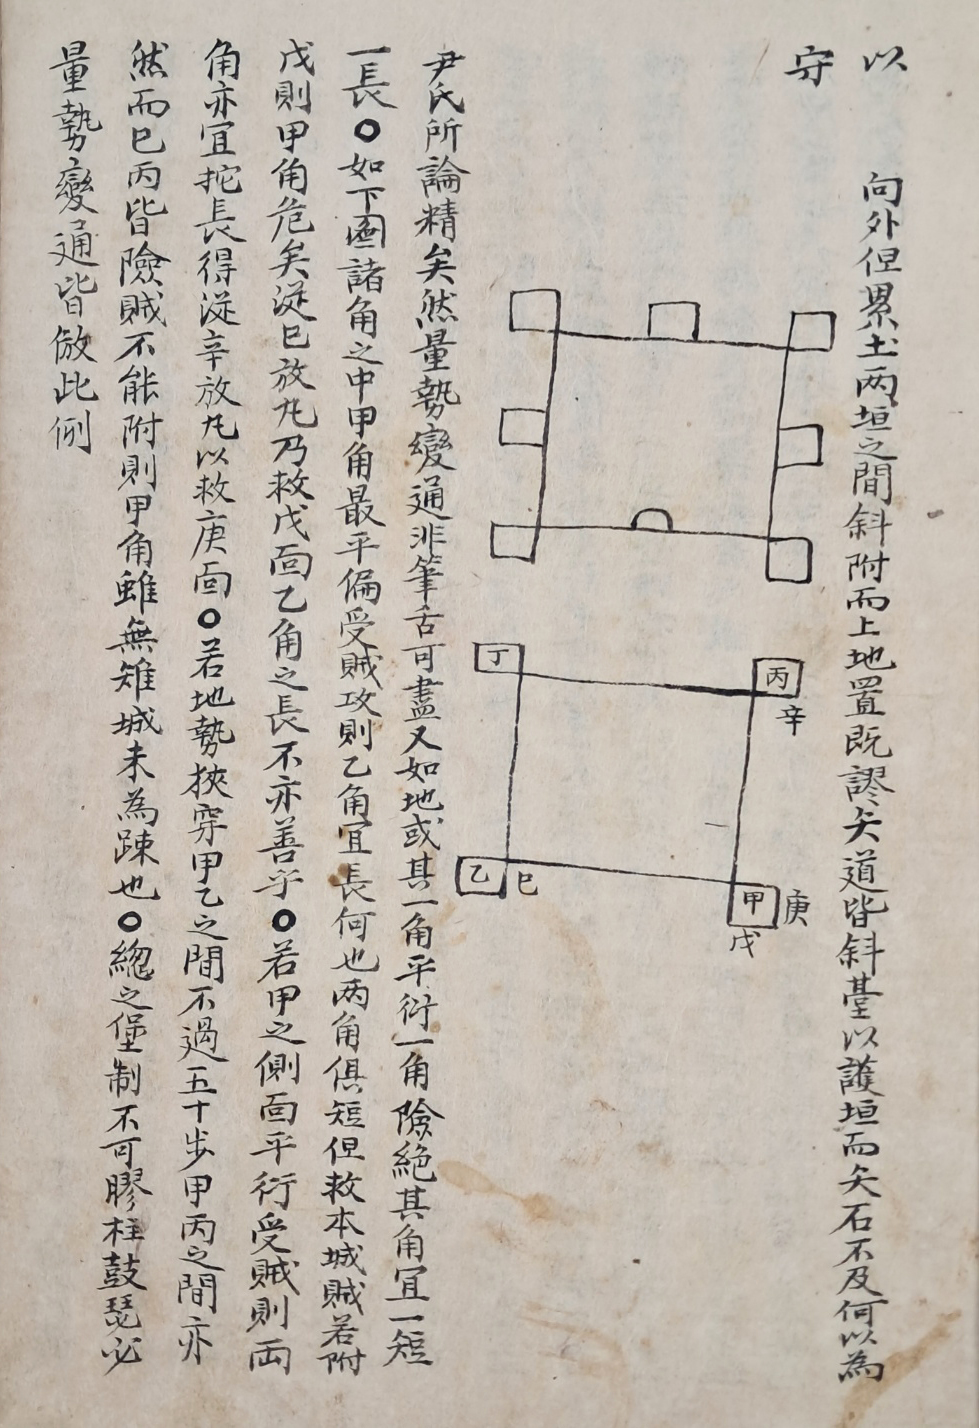 以　　向外但累土两垣之間斜附而上地置既謬矣道皆斜䑓以護垣而矢石不及何以為
守
丁
丙
辛
乙
巳
甲
庚
戊
尹氏所論精矣然量勢變通非筆舌可盡又如地或其一角平衍一角險絕其角宜一短
一長○如下圖諸角之中甲角最平偏受賊攻則乙角宜長何也两角俱短但救本城賊若附
戊則甲角危矣從巳放丸乃救戊面乙角之長不亦善乎○若甲之側面平衍受賊則両
角亦宜拕長得從辛放丸以救庚面○若地勢挾穿甲乙之間不過五十步甲丙之間亦
然而巳丙皆險賊不能附則甲角雖無雉城未為踈也○緫之堡制不可膠柱鼓瑟必
量勢變通皆倣此例